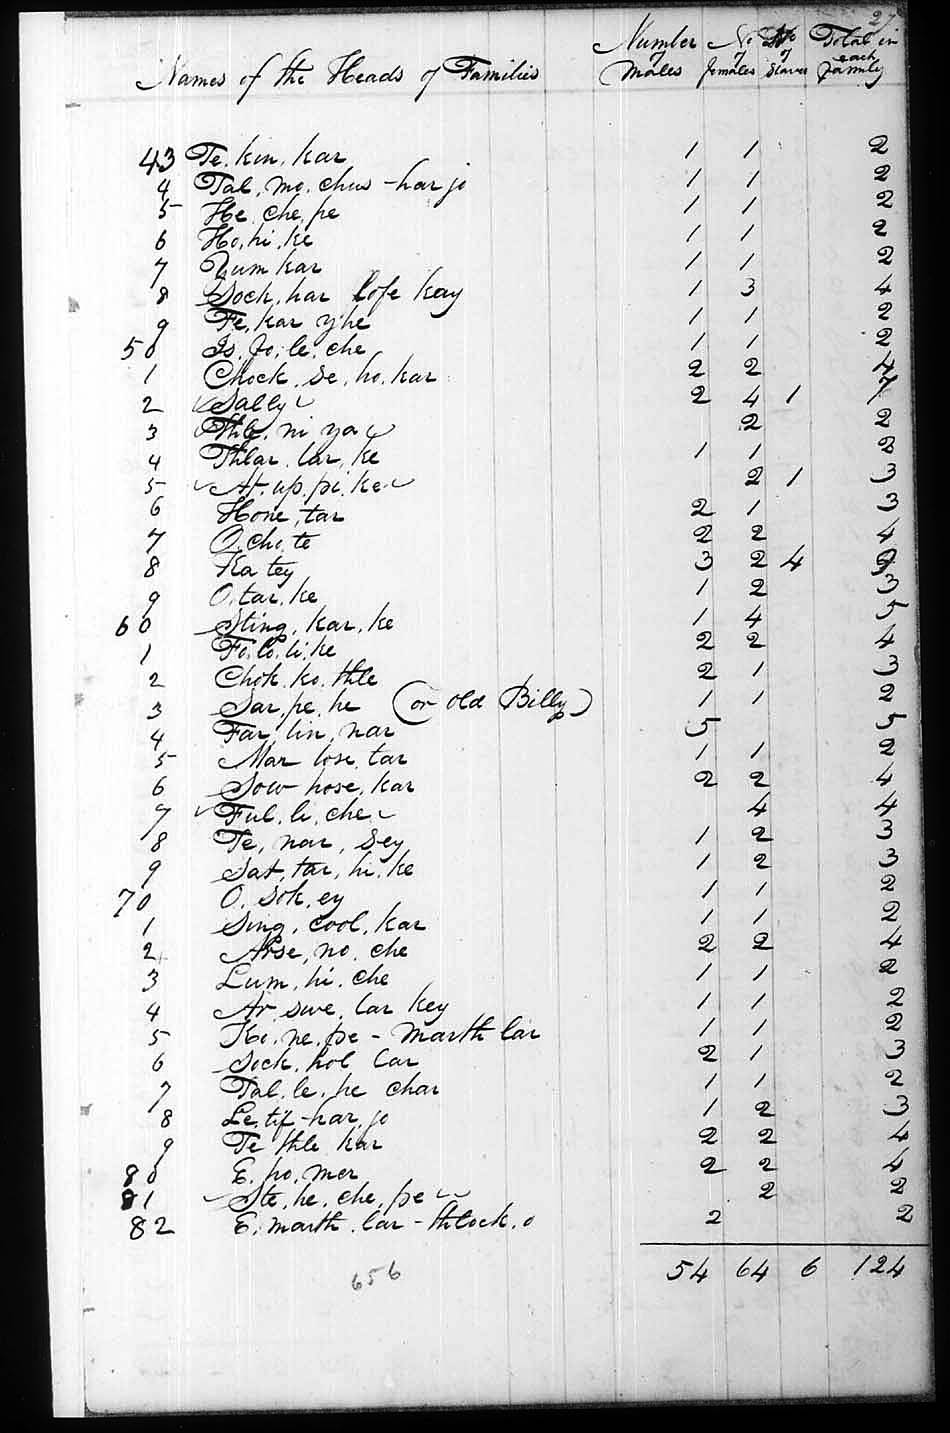 27
Number of Males No of females No of Slaves Total in each family
Names of the Heads of Families
43 Te. kin. kar 1 1 2
4 Tal. mo. chus - har jo 1 1 2
5 He. che. pe 1 1 2
6 Ho. hi. ke 1 1 2
7 Yum kar 1 1 2
8 Sock. har lofe kay 1 3 4
9 Fe. kar yhe 1 1 2
50 Is. fo. le. che 1 1 2
1 Chock. se. ho. kar 2 2 4
2 Sally 2 4 1 7
3 Thle. ni ya 2 2
4 Thlar. lar. ke 1 1 2
5 Ar. up. pi. ke 2 1 3
6 Hone, tar 2 1 3
7 O. cho. te 2 2 4
8 Ka tey 3 2 4 9
9 O. tar. ke 1 2 3
60 Sting. kar. ke 1 4 5
1 Fo. lo. li. ke 2 2 4
2 Chok. ko. thle 2 1 3
3 Sar. pe. he (or old Billy) 1 1 2
4 Far. lin. nar 5 5
5 Mar lose. tar 1 1 2
6 Sow hose. kar 2 2 4
7 Ful. li. che 4 4
8 Te, nar, sey 1 2 3
9 Sat. tar, hi. ke 1 2 3
70 O. sok. ey 1 1 2
1 Sing. cool. kar 1 1 2
2 Arse. no. che 2 2 4
3 Lum. hi. che 1 1 2
4 Ar. swe. lar key 1 1 2
5 Ko. ne. pe - marth lar 1 1 2
6 Sock. hol lar 2 1 3
7 Tal. le. pe char 1 1 2
8 Le. tif - har. jo 1 2 3
9 Te thle kar 2 2 4
80 E. po. mer 2 2 4
81 Ste. he. che. pe 2 2
82 E. marth. lar - thlock. o 2 2
54 64 6 124
656